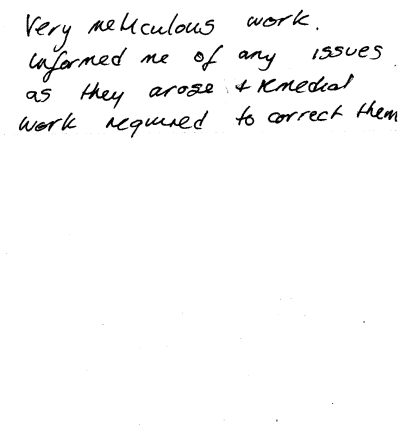 Very meticulous work.
Informed me of any issues
as they arose + remedial
work required to correct them